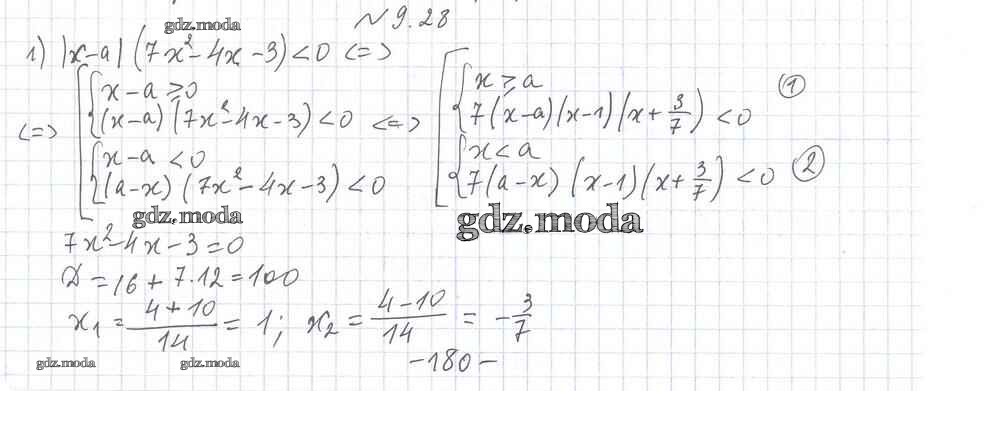 № 9.28
gdz.moda
1) |x-a| (7x²-4x-3)<0 <=>
<=> [ { x-a≥0
(x-a)(7x²-4x-3)<0
{ x-a<0
(a-x)(7x²-4x-3)<0
<=> [ { x≥a
7(x-a)(x-1)(x+3/7)<0 ①
{ x<a
7(a-x)(x-1)(x+3/7)<0 ②
gdz.moda
gdz.moda
7x²-4x-3=0
D=16+7·12=100
x₁ = (4+10)/14 = 1; x₂ = (4-10)/14 = -3/7
gdz.moda gdz.moda
-180-